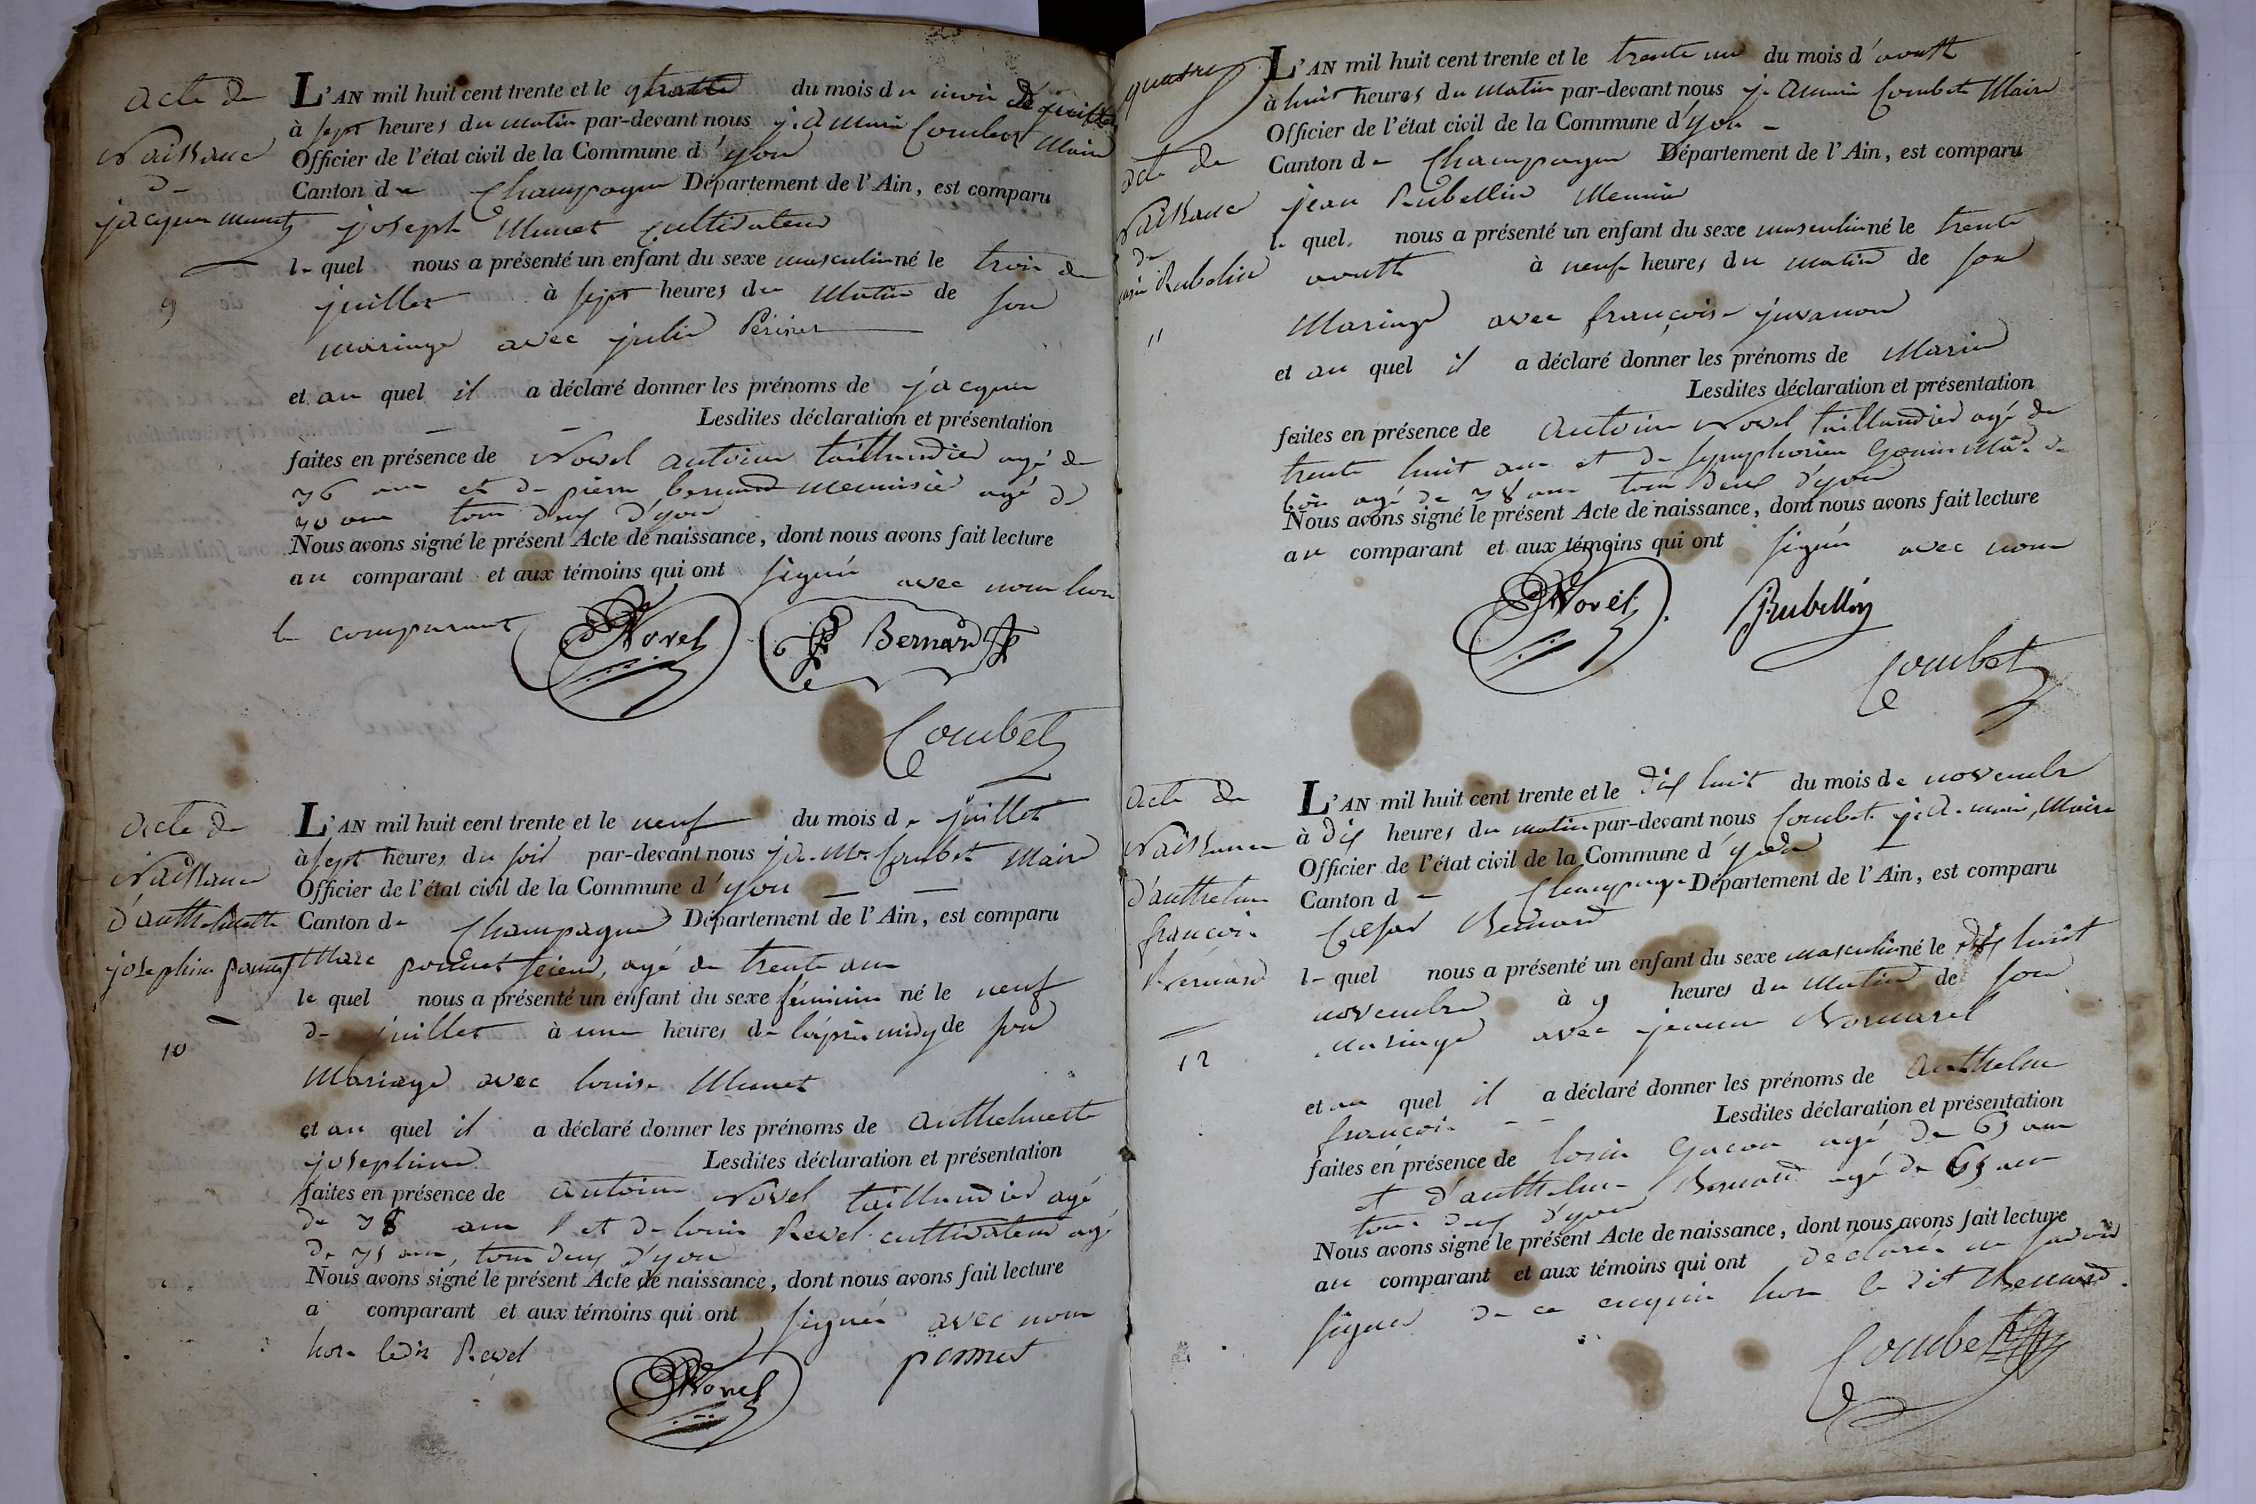 acte de
Naissance
de
jacque munet
9
L'AN mil huit cent trente et le quatre du mois du mois de juillet
à sept heures du matin par-devant nous j. a mari Combet Maire
Officier de l'état civil de la Commune d'yon
Canton de Champagne Département de l'Ain, est comparu
joseph Munet cultivateur
le quel nous a présenté un enfant du sexe masculin né le trois de
juillet à sept heures du Matin de son
mariage avec julie
et au quel il a déclaré donner les prénoms de jacque
Lesdites déclaration et présentation
faites en présence de Novel antoine taillandier agé de
36 ans et de pierre bernard menuisié agé de
30 ans tous deux d'yon
Nous avons signé le présent Acte de naissance, dont nous avons fait lecture
au comparant et aux témoins qui ont signés avec nous hors
le comparant
Novel Bernard
Combet
acte de
Naissance
d'anthelmette
josephine ponnet
10
L'AN mil huit cent trente et le neuf du mois de juillet
à sept heures du soir par-devant nous Combet Maire
Officier de l'état civil de la Commune d'yon
Canton de Champagne Département de l'Ain, est comparu
Marc ponnet scieur, agé de trente ans
le quel nous a présenté un enfant du sexe féminin né le neuf
de juillet à une heures de l'après midy de son
Mariage avec louise Munet
et au quel il a déclaré donner les prénoms de anthelmette
josephine Lesdites déclaration et présentation
faites en présence de antoine Novel taillandier agé
de 38 ans et de louis Revel cultivateur agé
de 35 ans, tous deux d'yon
Nous avons signé le présent Acte de naissance, dont nous avons fait lecture
a comparant et aux témoins qui ont signés avec nous
hors ledit Revel ponnet
Novel
quatre
acte de
Naissance
de
marin Rubelin
11
L'AN mil huit cent trente et le trente un du mois d'aoust
à huit heures du matin par-devant nous j. a mari Combet Maire
Officier de l'état civil de la Commune d'yon
Canton de Champagne Département de l'Ain, est comparu
jean Rubellin
le quel nous a présenté un enfant du sexe masculin né le trente
aoust à neuf heures du matin de son
Mariage avec françoise juvanon
et au quel il a déclaré donner les prénoms de Marin
Lesdites déclaration et présentation
faites en présence de antoine Novel taillandier agé de
trente huit ans et de symphorien de
agé de 38 ans tous deux d'yon
Nous avons signé le présent Acte de naissance, dont nous avons fait lecture
au comparant et aux témoins qui ont signés avec nous
Novel Rubellin
Combet
acte de
Naissance
d'anthelme
francois
bernard
12
L'AN mil huit cent trente et le dix huit du mois de novembre
à dix heures du matin par-devant nous Combet j. a. mari, Maire
Officier de l'état civil de la Commune d'yon
Canton de Champagne Département de l'Ain, est comparu
César Bernard
le quel nous a présenté un enfant du sexe masculin né le dix huit
novembre à 9 heures du Matin de son
mariage avec jeanne
et au quel il a déclaré donner les prénoms de anthelme
francois Lesdites déclaration et présentation
faites en présence de louis agé de 65 ans
et d'anthelme Bernard agé de 65 ans
tous deux d'yon
Nous avons signé le présent Acte de naissance, dont nous avons fait lecture
au comparant et aux témoins qui ont déclarés ne savoir
signer de ce enquis hors le dit Bernard.
Combet